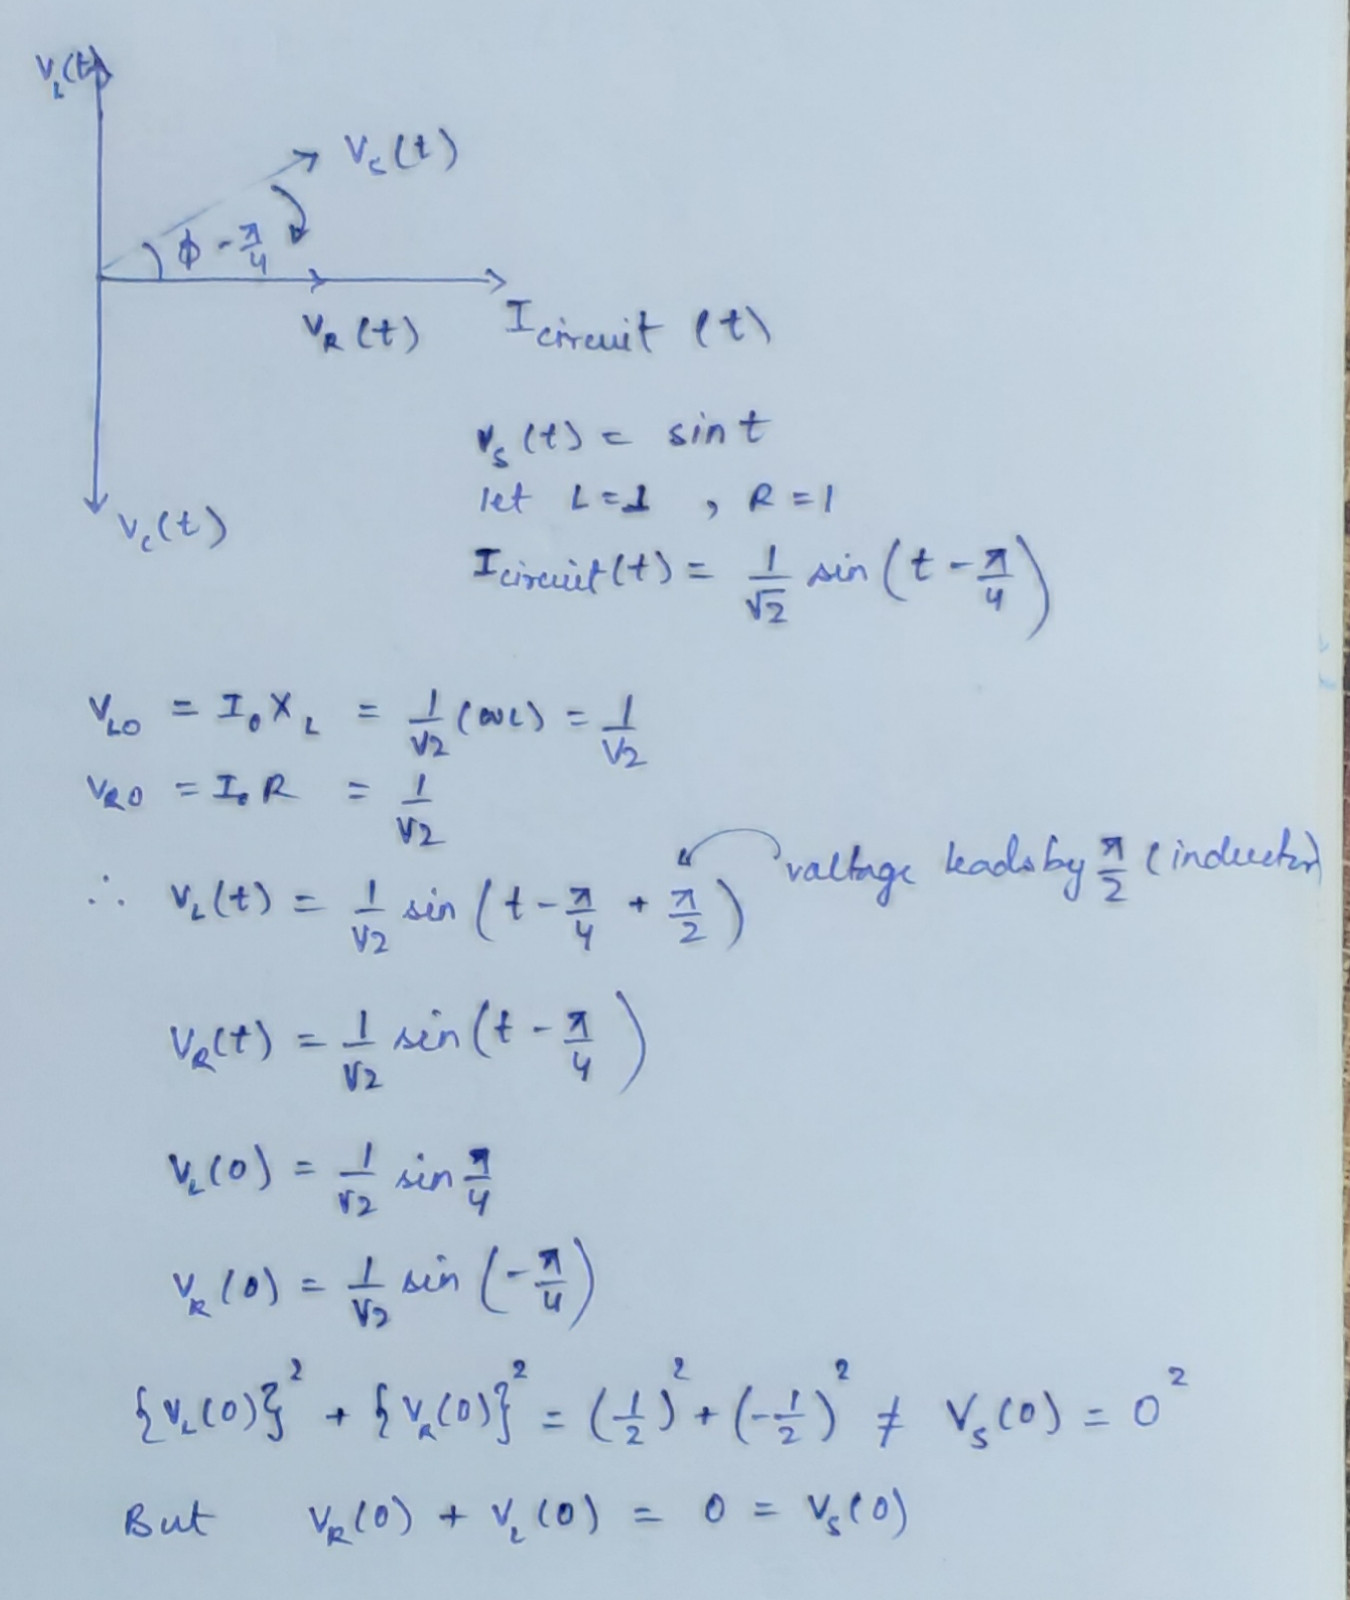 V_L(t)
V_s(t)
ϕ - π/4
V_R(t)
I circuit (t)
V_s(t) = sin t
let L=1 , R=1
V_c(t)
I circuit(t) = 1/√2 sin(t - π/4)
V_L0 = I_0 X_L = 1/√2 (ωL) = 1/√2
V_R0 = I_0 R = 1/√2
∴ V_L(t) = 1/√2 sin(t - π/4 + π/2) valtage leads by π/2 (inductor)
V_R(t) = 1/√2 sin(t - π/4)
V_L(0) = 1/√2 sin π/4
V_R(0) = 1/√2 sin(-π/4)
{V_L(0)}² + {V_R(0)}² = (1/2)² + (-1/2)² ≠ V_s(0) = 0²
But V_R(0) + V_L(0) = 0 = V_s(0)